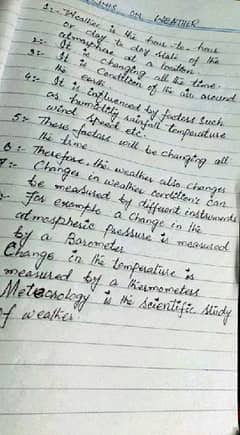 ON WEATHER
1:- Weather is the hour-to-hour
or day to day state of the
atmosphere at a location
2:- It is changing all the time.
3:- It is condition of the air around
the earth.
4:- It is influenced by factors such
as, humidity, rainfall, temperature
wind speed etc.
5:- These factors will be changing all
the time.
6:- Therefore, the weather also changes
7:- Changes in weather conditions can
be measured by different instruments
for example a change in the
atmospheric pressure is measured
by a Barometer
Change in the temperature is
measured by a thermometers
Meteorology is the scientific study
of weather.